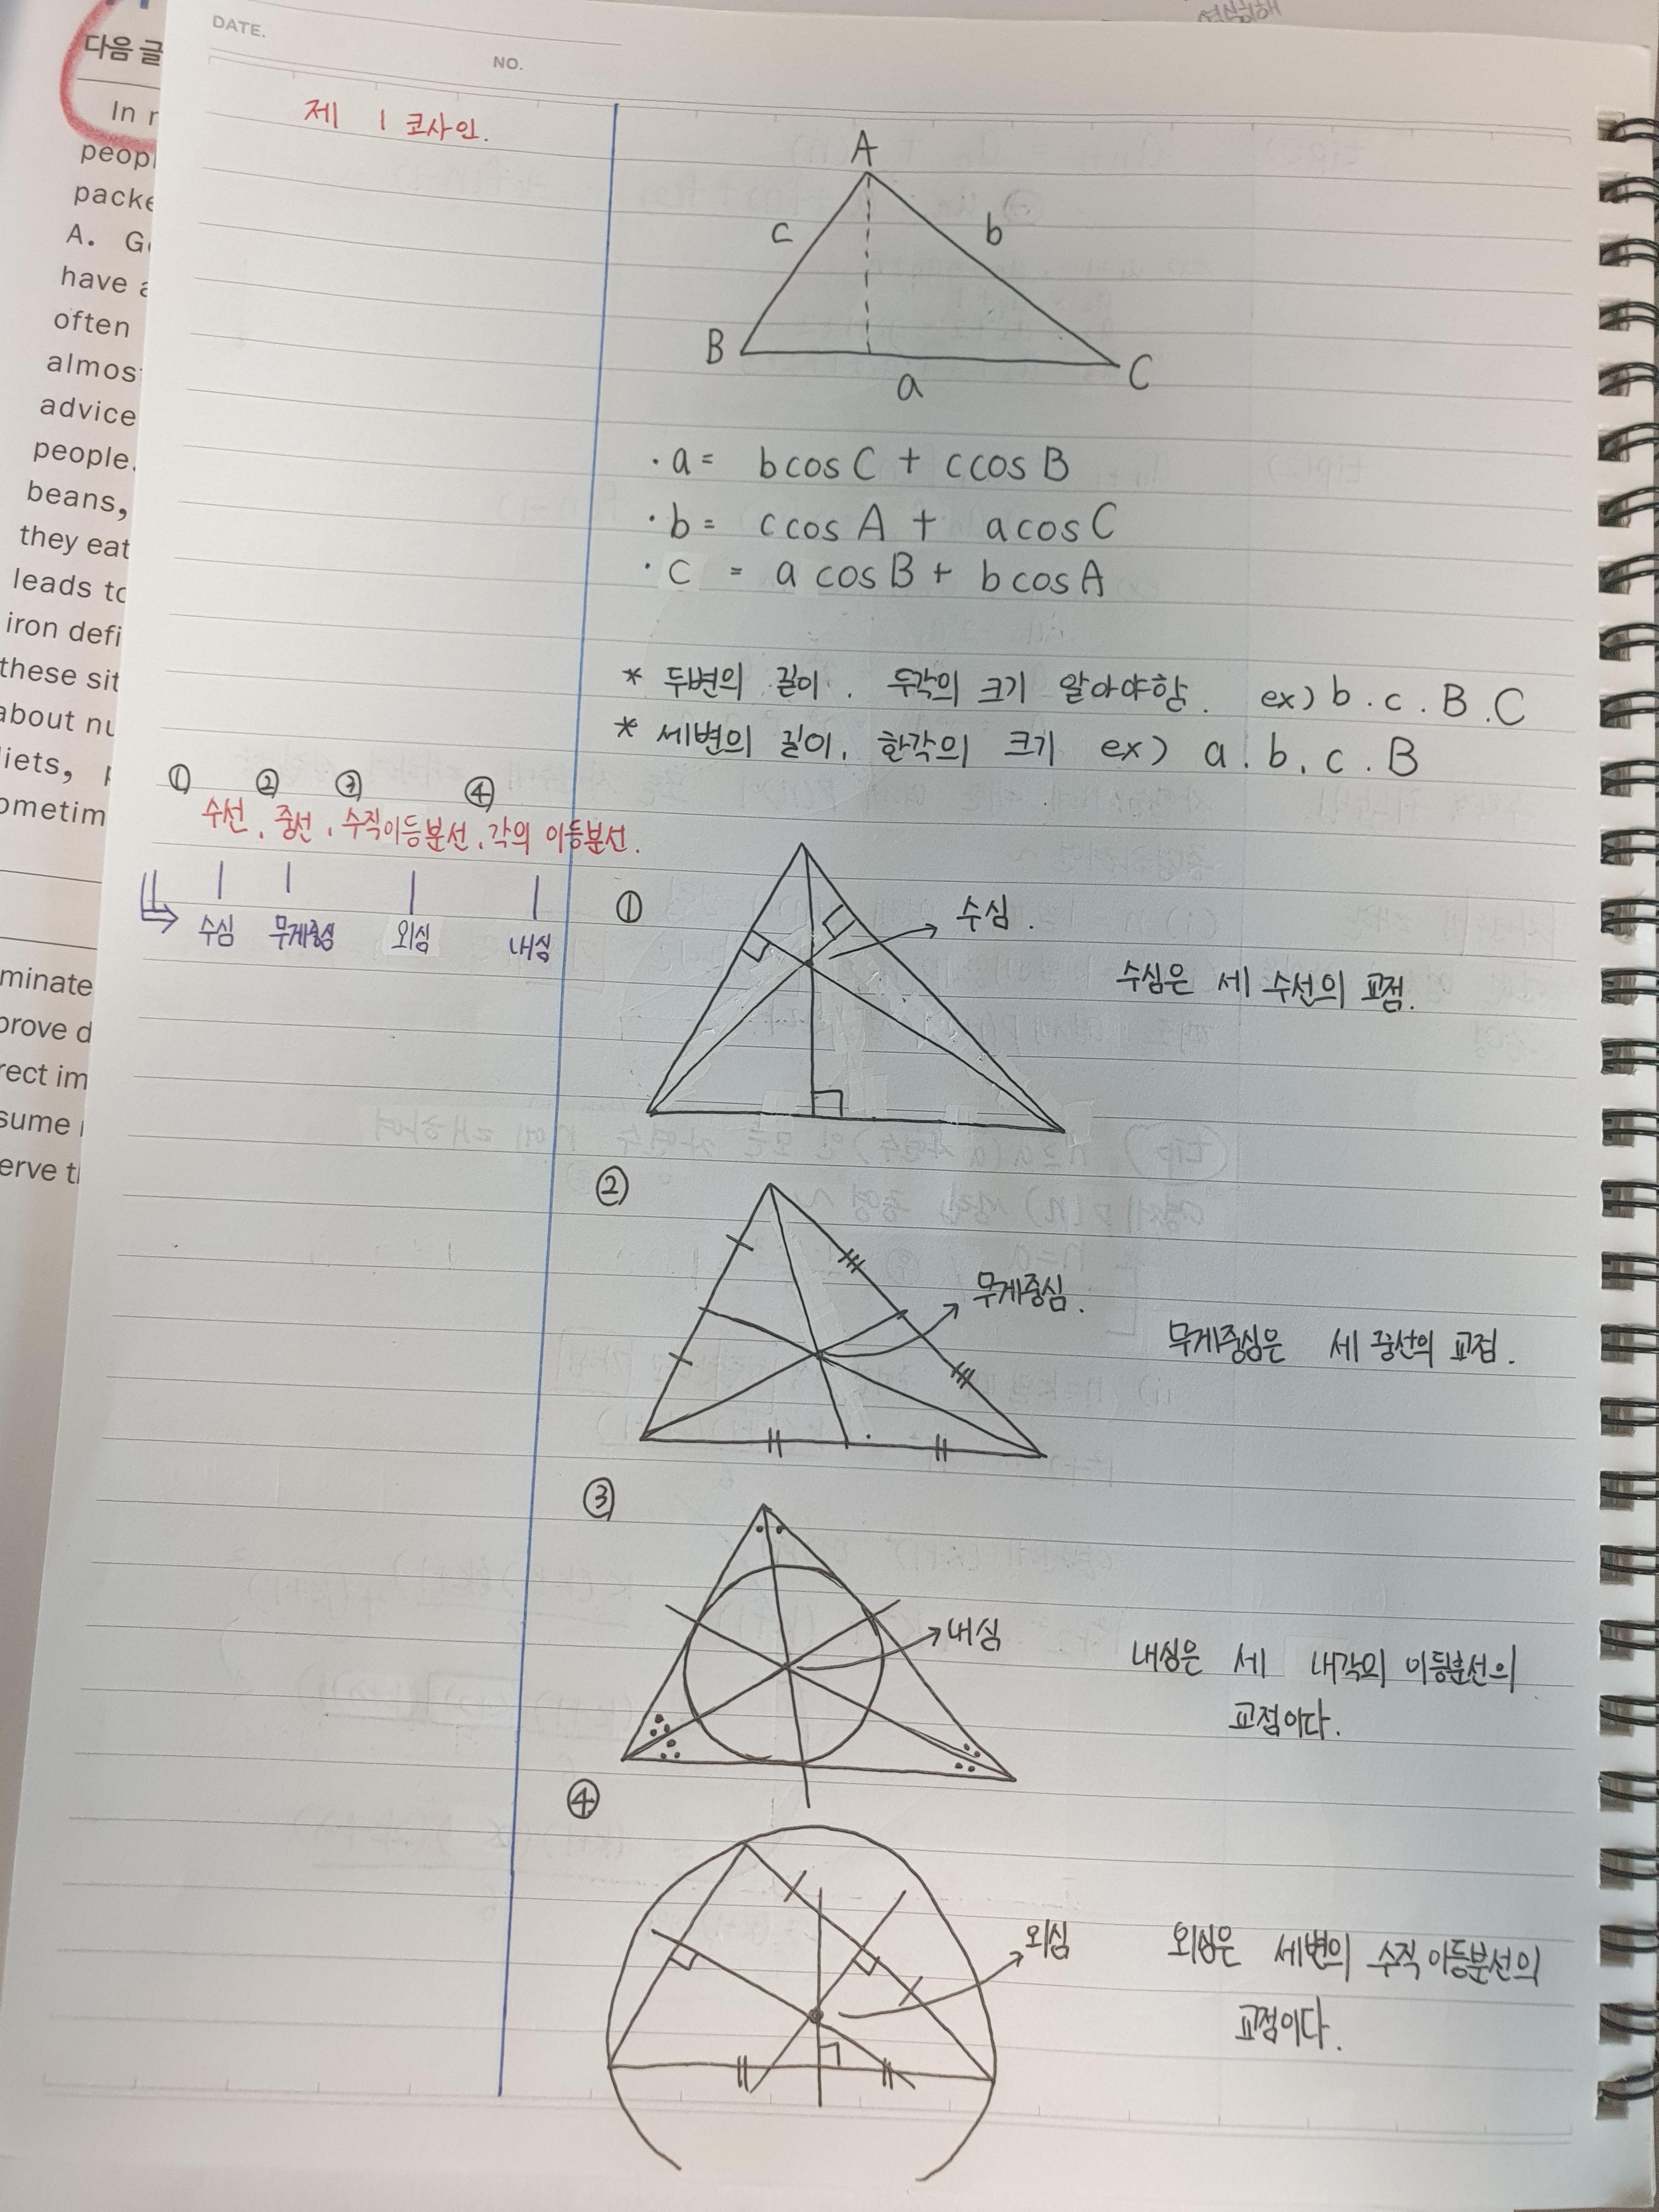 다음 글
In r
peopl
packe
A. Ge
have a
often
almos
advice
people.
beans,
they eat
leads to
iron defi
these sit
about nu
diets, p
ometim
minate
prove d
rect im
sume
erve th
DATE.
NO.
제 1 코사인.
A
c b
B C
a
· a = b cos C + c cos B
· b = c cos A + a cos C
· c = a cos B + b cos A
* 두변의 길이, 두각의 크기 알아야함. ex) b . c . B . C
* 세변의 길이, 한각의 크기 ex) a . b . c . B
① ② ③ ④
수선, 중선, 수직이등분선, 각의 이등분선.
수심 무게중심 외심 내심
① 수심.
수심은 세 수선의 교점.
② 무게중심.
무게중심은 세 중선의 교점.
③ 내심
내심은 세 내각의 이등분선의
교점이다.
④ 외심
외심은 세변의 수직 이등분선의
교점이다.